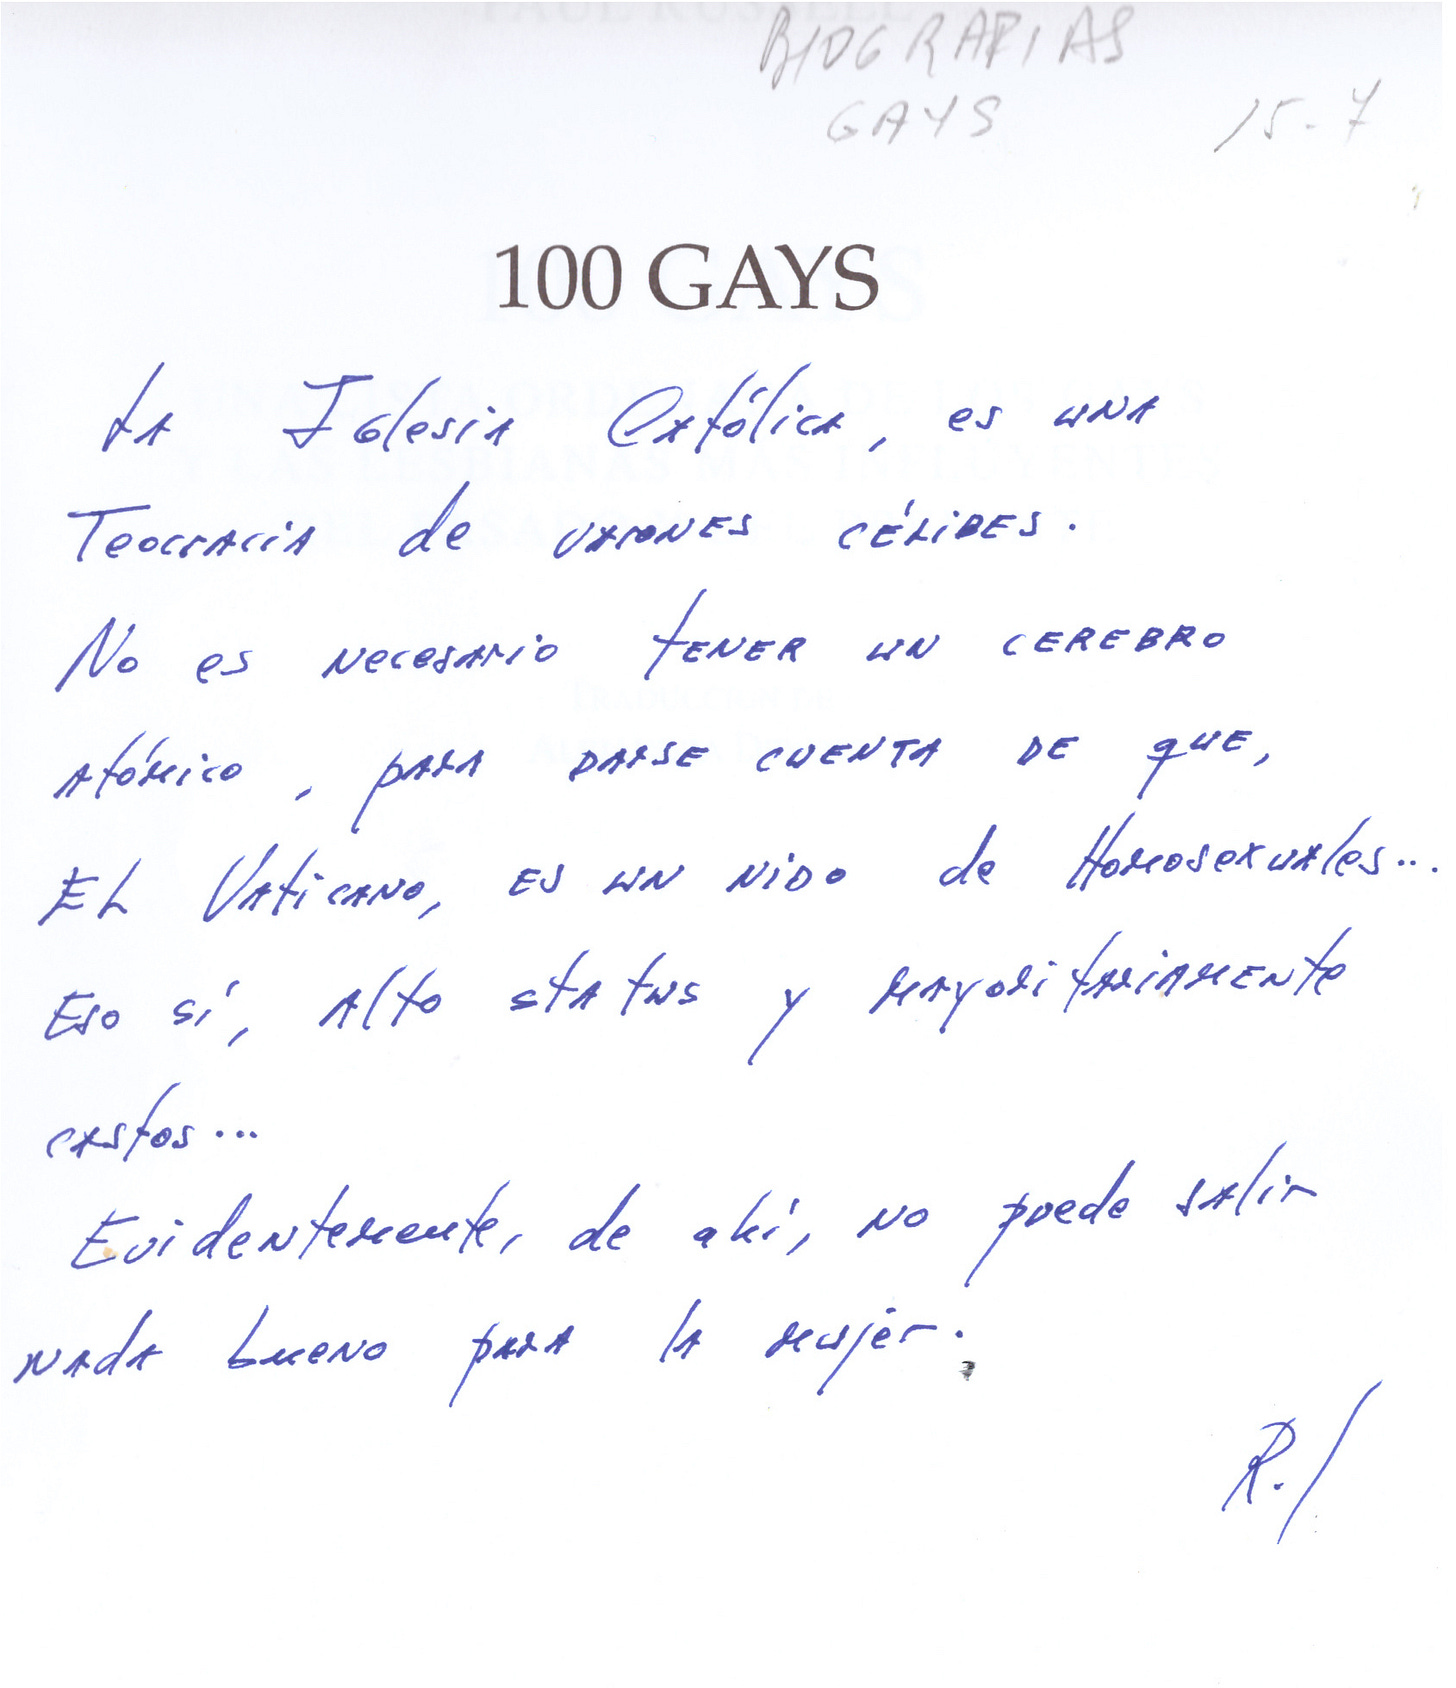 PAUL RUSSELL
BIOGRAFIAS
GAYS 15-7
100 GAYS
La Iglesia Católica, es una
Teocracia de varones célibes.
No es necesario tener un cerebro
atómico, para darse cuenta de que,
El Vaticano, es un nido de Homosexuales...
Eso sí, alto status y mayoritariamente
castos...
Evidentemente, de ahí, no puede salir
nada bueno para la mujer.
R./